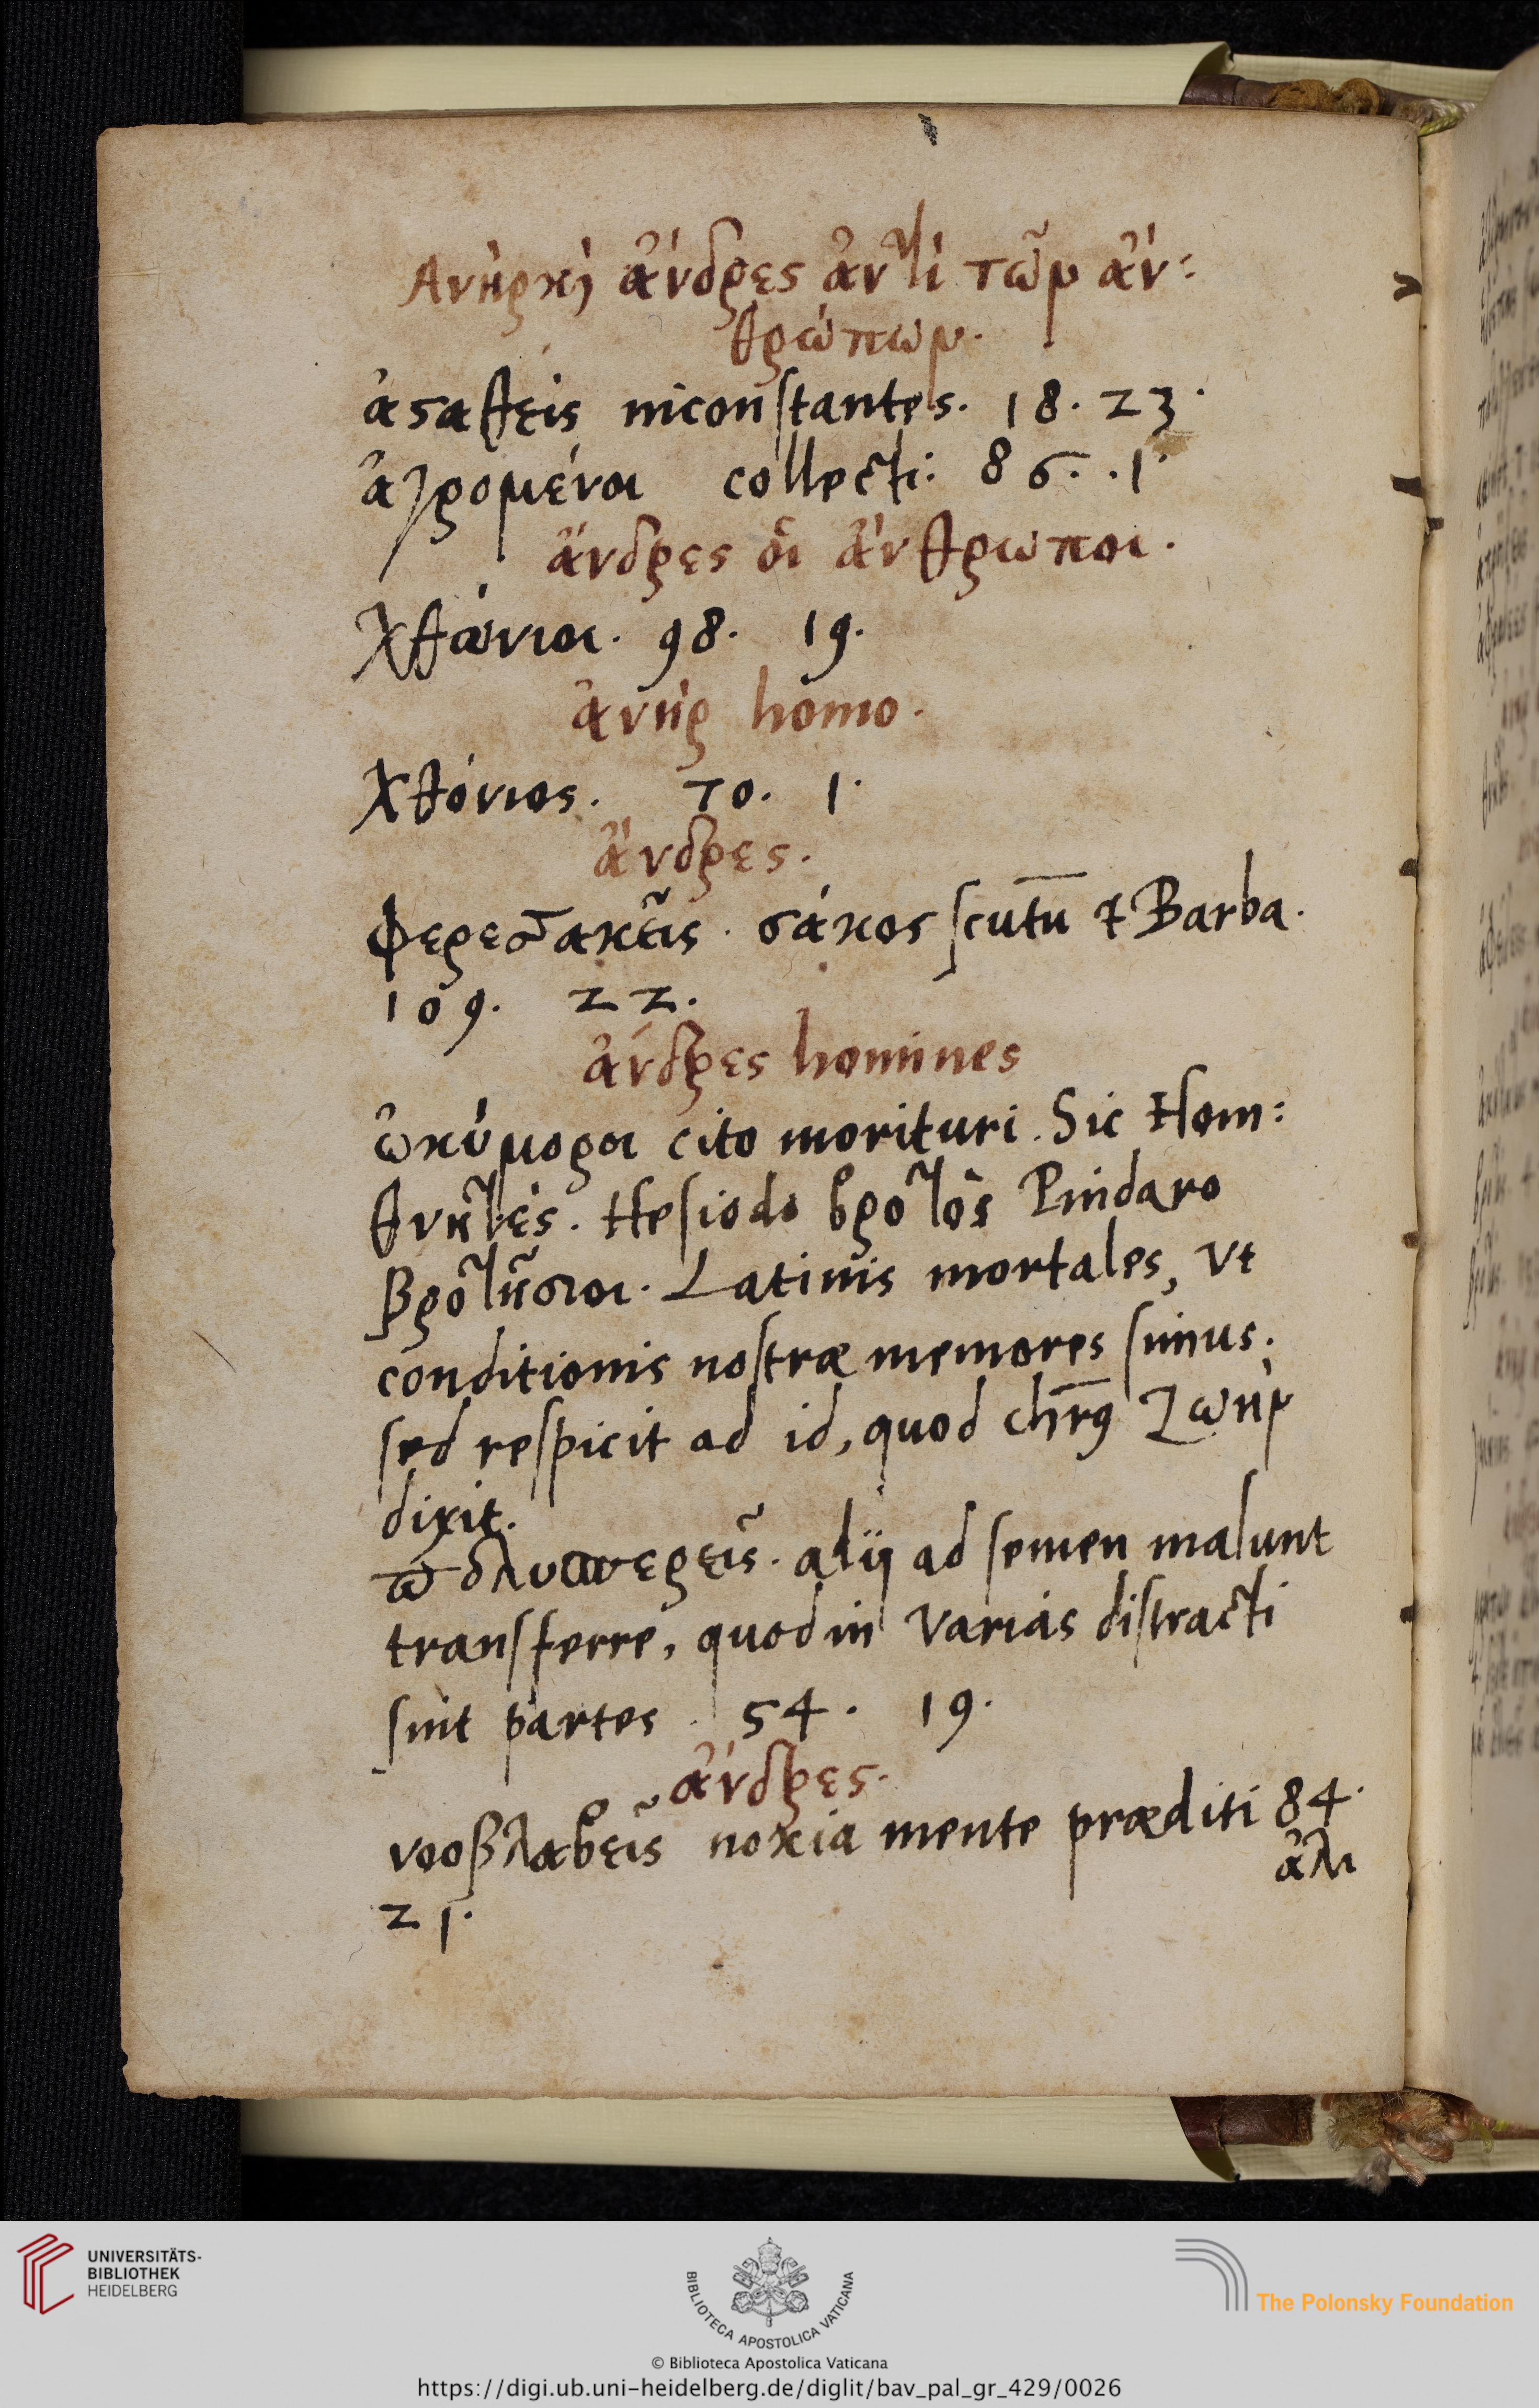 Ανὴρ κὶ ἄνδρες ἀντὶ τῶν ἀν:
θρώπων.
ἀσταθεῖς inconstantes. 18. 23.
ἀγρομένοι collecti: 86. 1.
ἄνδρες οἱ ἄνθρωποι.
Χθόνιοι. 98. 19.
ἀνὴρ homo.
Χθόνιος. 70. 1.
ἄνδρες.
φερεσσακεῖς. σάκος scutū & Barba.
109. 22.
ἄνδρες homines
ὠκύμοροι cito morituri. Sic Hom:
θνητές. Hesiodo βροτὸς Pindaro
βροτήσιοι. Latinis mortales, vt
conditionis nostræ memores simus.
sed respicit ad id, quod chrꝰ ζωὴν
dixit.
πολυσπερεῖς. alij ad semen malunt
transferre, quod in varias distracti
sint partes. 54. 19.
ἄνδρες.
νοοβλαβεῖς noxia mente præditi 84.
21.
ἀλι
UNIVERSITÄTS-
BIBLIOTHEK
HEIDELBERG
BIBLIOTECA APOSTOLICA VATICANA
The Polonsky Foundation
© Biblioteca Apostolica Vaticana
https://digi.ub.uni-heidelberg.de/diglit/bav_pal_gr_429/0026